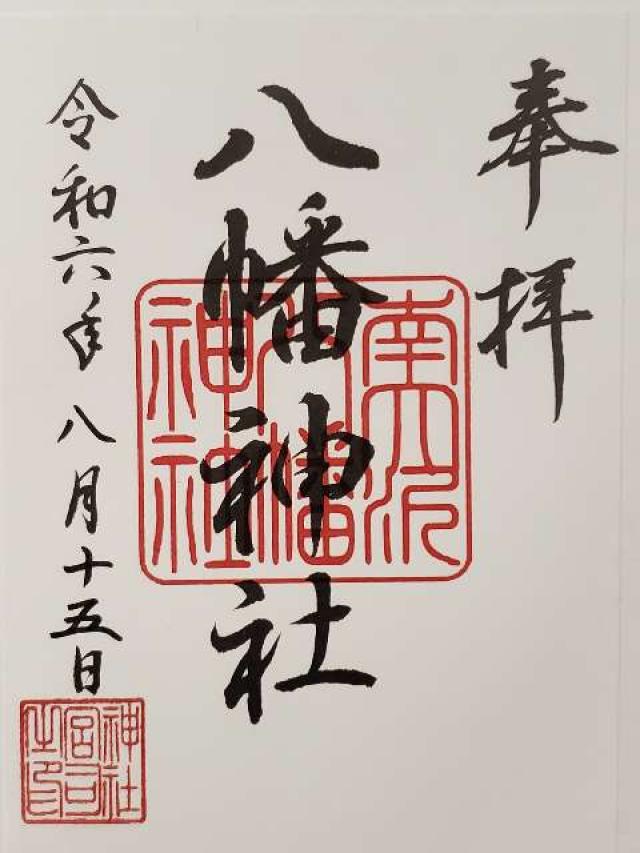 奉拝
八幡神社
令和六年八月十五日
南大沢
八幡
神社
神社
宮司
之印